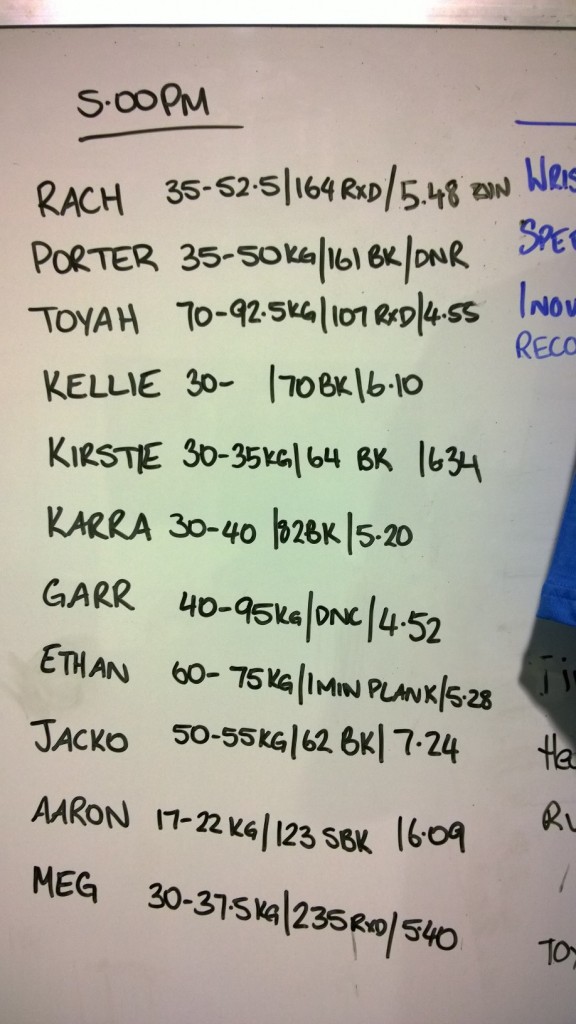 5.00PM
RACH 35-52.5/164 RXD/5.48
PORTER 35-50KG/161 BK/DNR
TOYAH 70-92.5KG/107 RXD/4.55
KELLIE 30- /70BK/6.10
KIRSTIE 30-35KG/64 BK /634
KARRA 30-40 /82BK/5.20
GARR 40-95KG/DNC/4.52
ETHAN 60-75KG/1MIN PLANK/5.28
JACKO 50-55KG/62 BK/7.24
AARON 17-22KG/123 SBK /6.09
MEG 30-37.5KG/235RXD/5.40
WRIS
SPEE
INOV
RECO